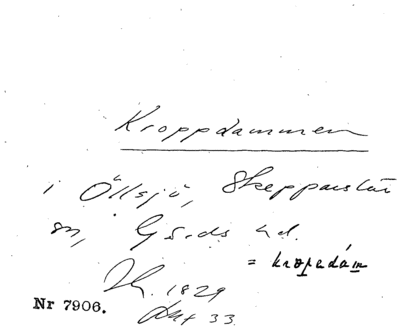 Kroppdammen
i Öllsjö, Skepparslöv
sn, Gärds hd.
= kropedám
1829
33
Nr 7906.